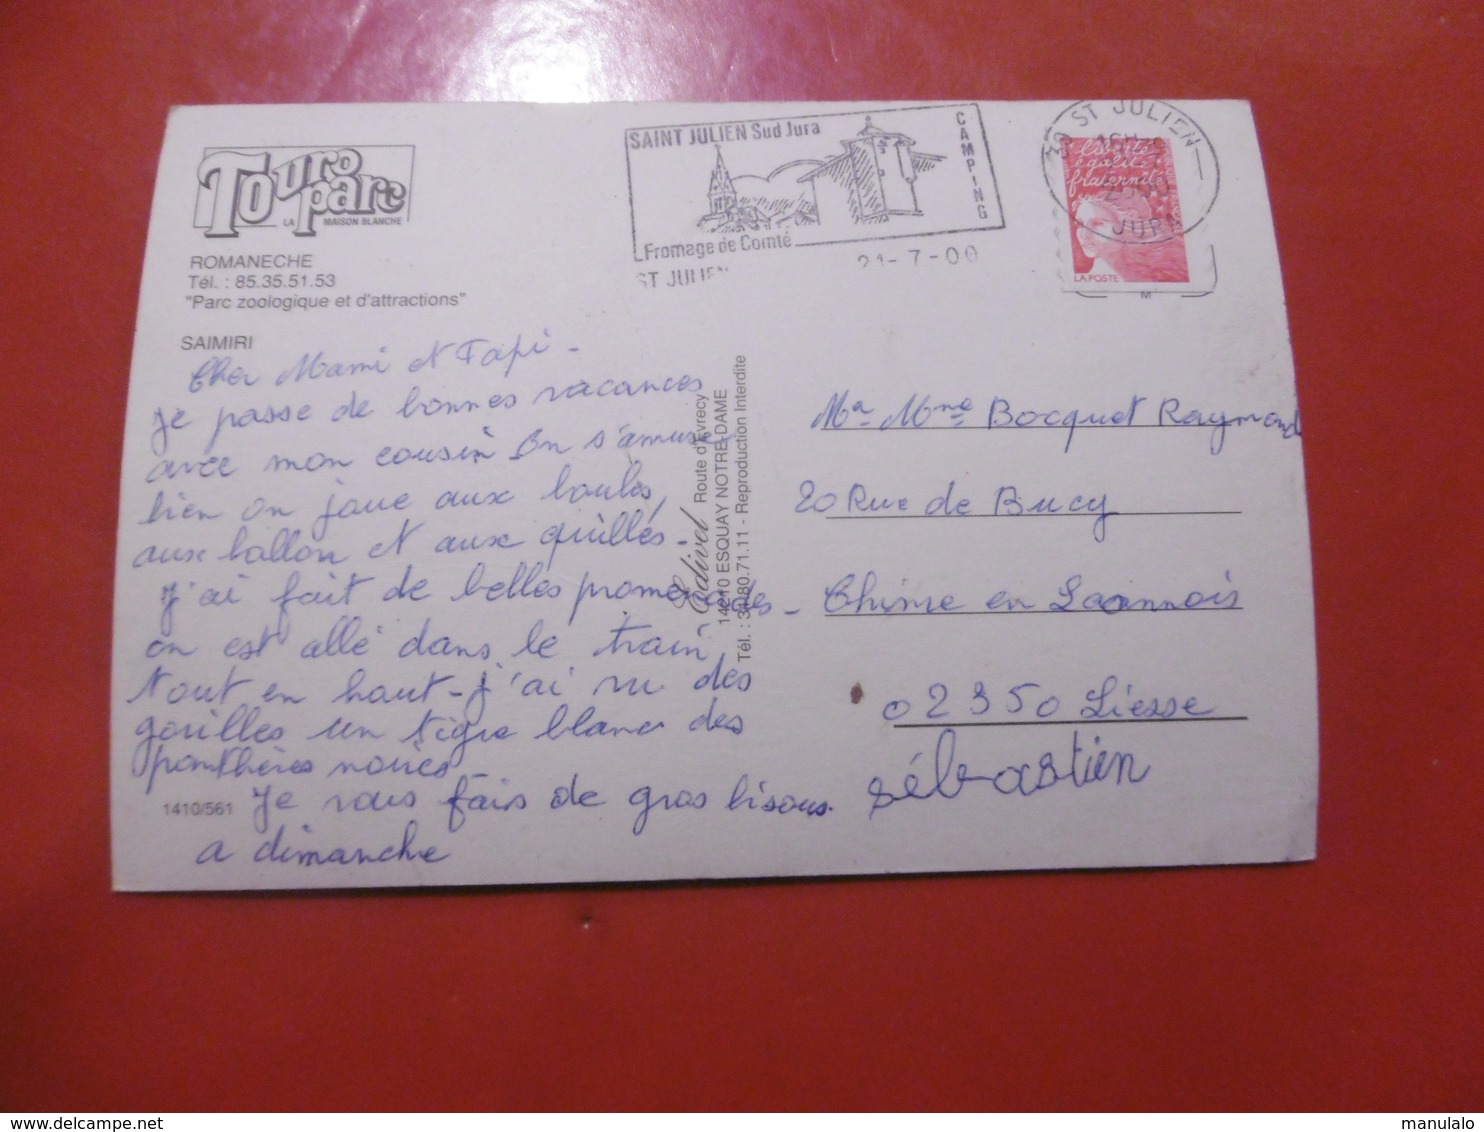 Touroparc
LA MAISON BLANCHE
ROMANECHE
Tél. : 85.35.51.53
"Parc zoologique et d'attractions"
SAIMIRI
SAINT JULIEN Sud Jura
CAMPING
Fromage de Comté
ST JULIEN
21-7-00
39 ST JULIEN
JURA
liberté
égalité
fraternité
LA POSTE
Cher Mami et Papi -
Je passe de bonnes vacances
avec mon cousin On s'amuse
bien on joue aux boules,
aux ballon et aux quilles -
J'ai fait de belles promenades -
on est allé dans le train,
tout en haut - j'ai vu des
gorilles un tigre blanc des
panthères noires
Je vous fais de gros bisous.
a dimanche
sébastien
1410/561
Edivel Route d'Evrecy
14210 ESQUAY NOTRE-DAME
Tél. : 31.80.71.11 - Reproduction Interdite
Mr Mme Bocquet Raymond
20 Rue de Bucy
Chivre en Laonnois
02350 Liesse
delcampe.net
manulalo